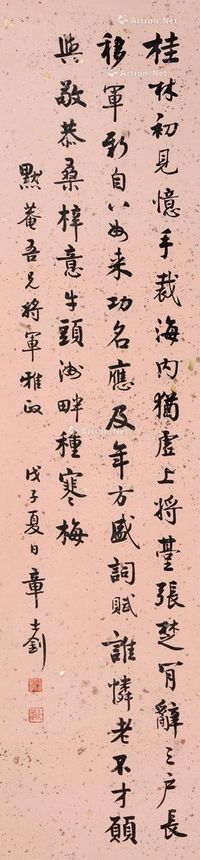 桂林初见憶手裁海内猶虚上将臺張楚肯辭三户長
移軍新自八如来功名應及年方盛詞賦誰憐老不才願
與敬恭桑梓意牛頭洲畔種寒梅
默菴吾兄將軍雅政
戊子夏日章士釗
Artron.Net
Artron.Net